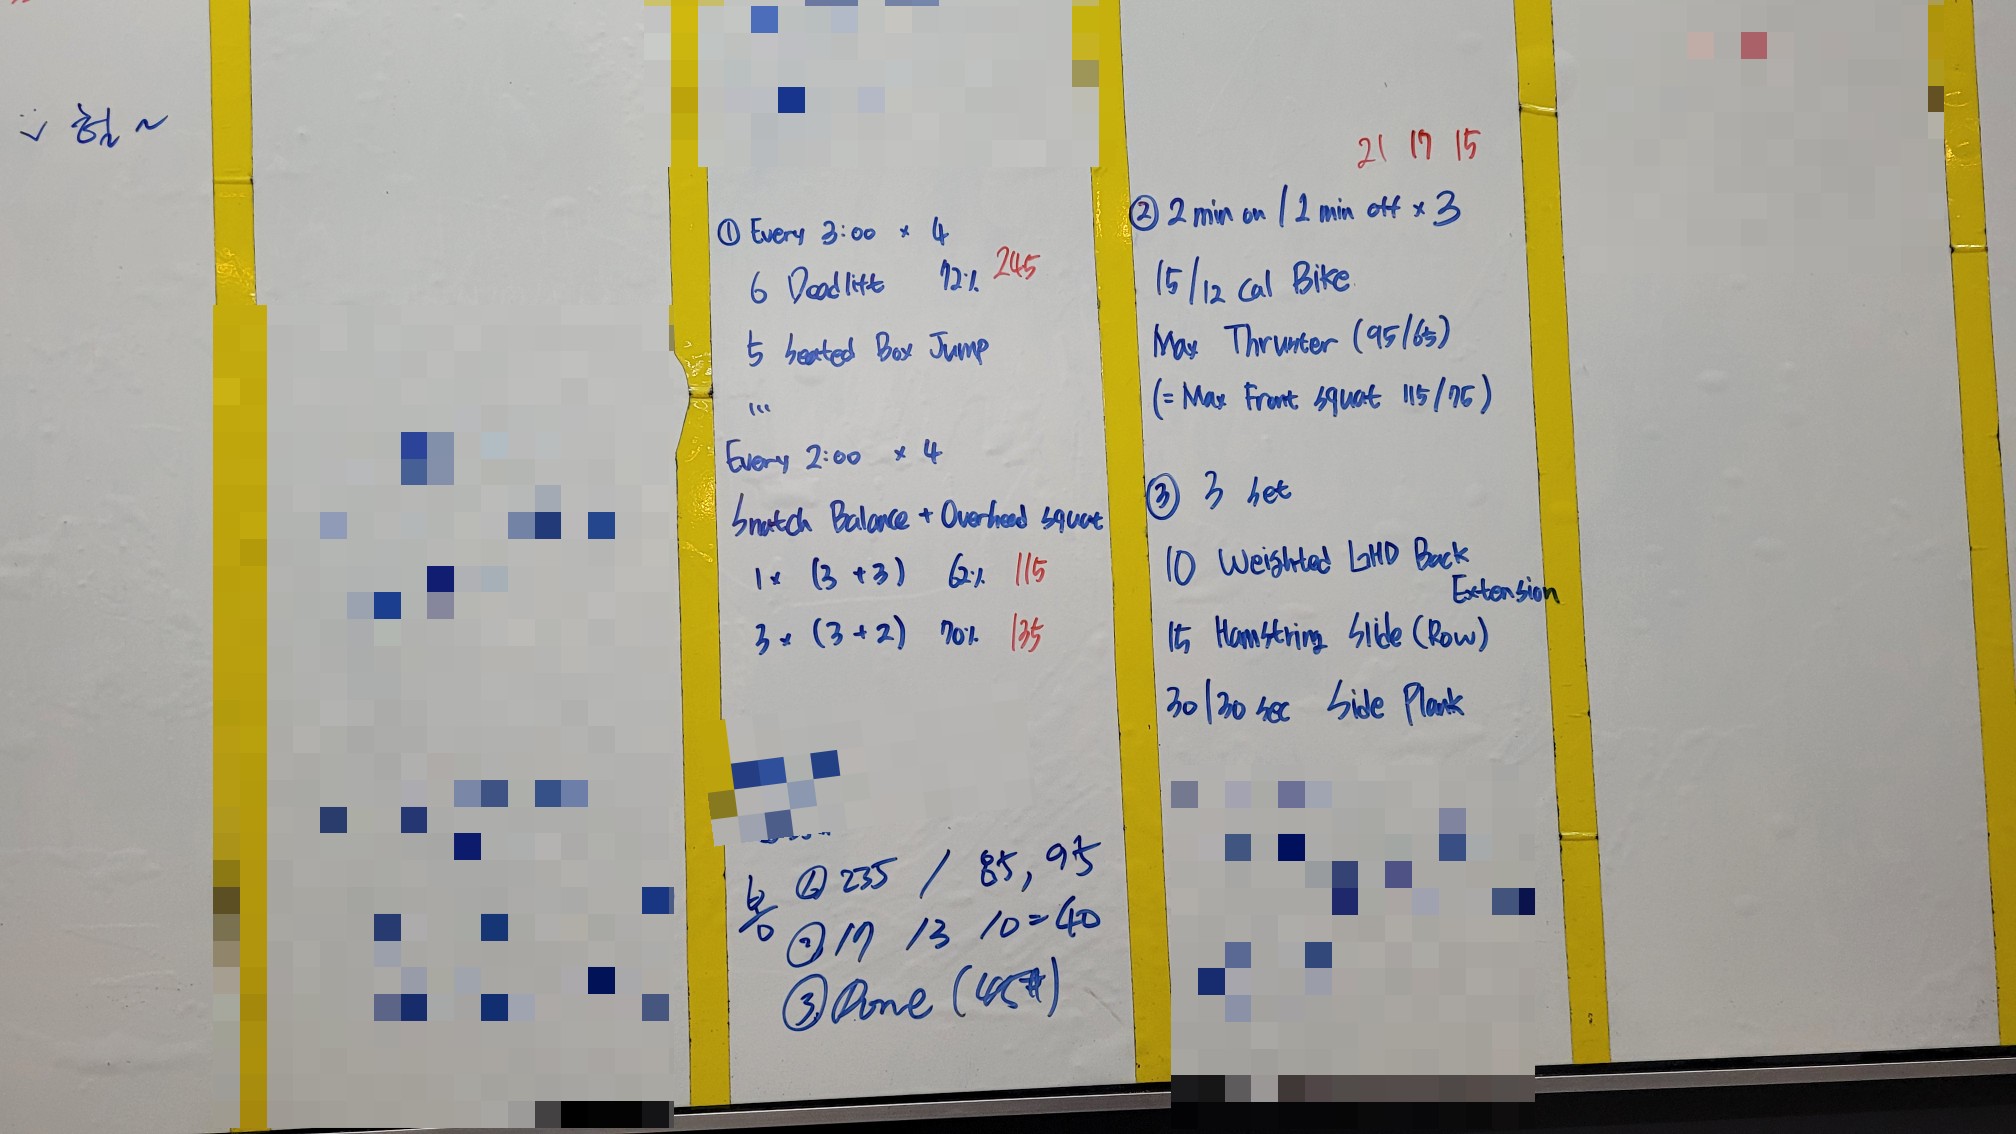 헐~
① Every 3:00 × 4
6 Deadlift 72% 245
5 Seated Box Jump
...
Every 2:00 × 4
Snatch Balance + Overhead Squat
1 × (3 + 3) 62% 115
3 × (3 + 2) 70% 135
235 / 85, 95
② 17 13 10 = 40
③ Done (45#)
21 17 15
② 2 min on / 2 min off × 3
15/12 Cal Bike
Max Thruster (95/65)
(= Max Front Squat 115/75)
③ 3 Set
10 Weighted GHD Back
Extension
15 Hamstring Slide (Row)
30/30 sec Side Plank